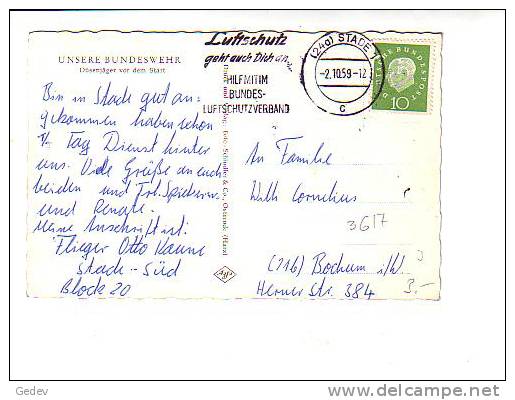 UNSERE BUNDESWEHR
Düsenjäger vor dem Start
Luftschutz
geht auch Dich an...
HILF MIT IM
BUNDES-
LUFTSCHUTZVERBAND
(24a) STADE 1
-2.10.59-12
c
DEUTSCHE BUNDESPOST
10
Bin in Stade gut an-
gekommen haben schon
1/2 Tag Dienst hinter
uns. Viele Grüße an euch
beiden und
und Renate.
Meine Anschrift ist:
Flieger Otto
Stade-Süd
Block 20
An Familie
Willi Cornelius
3617
(216) Bochum i/W
Herner Str. 384
3.-
Gedev
http://www.delcampe.net